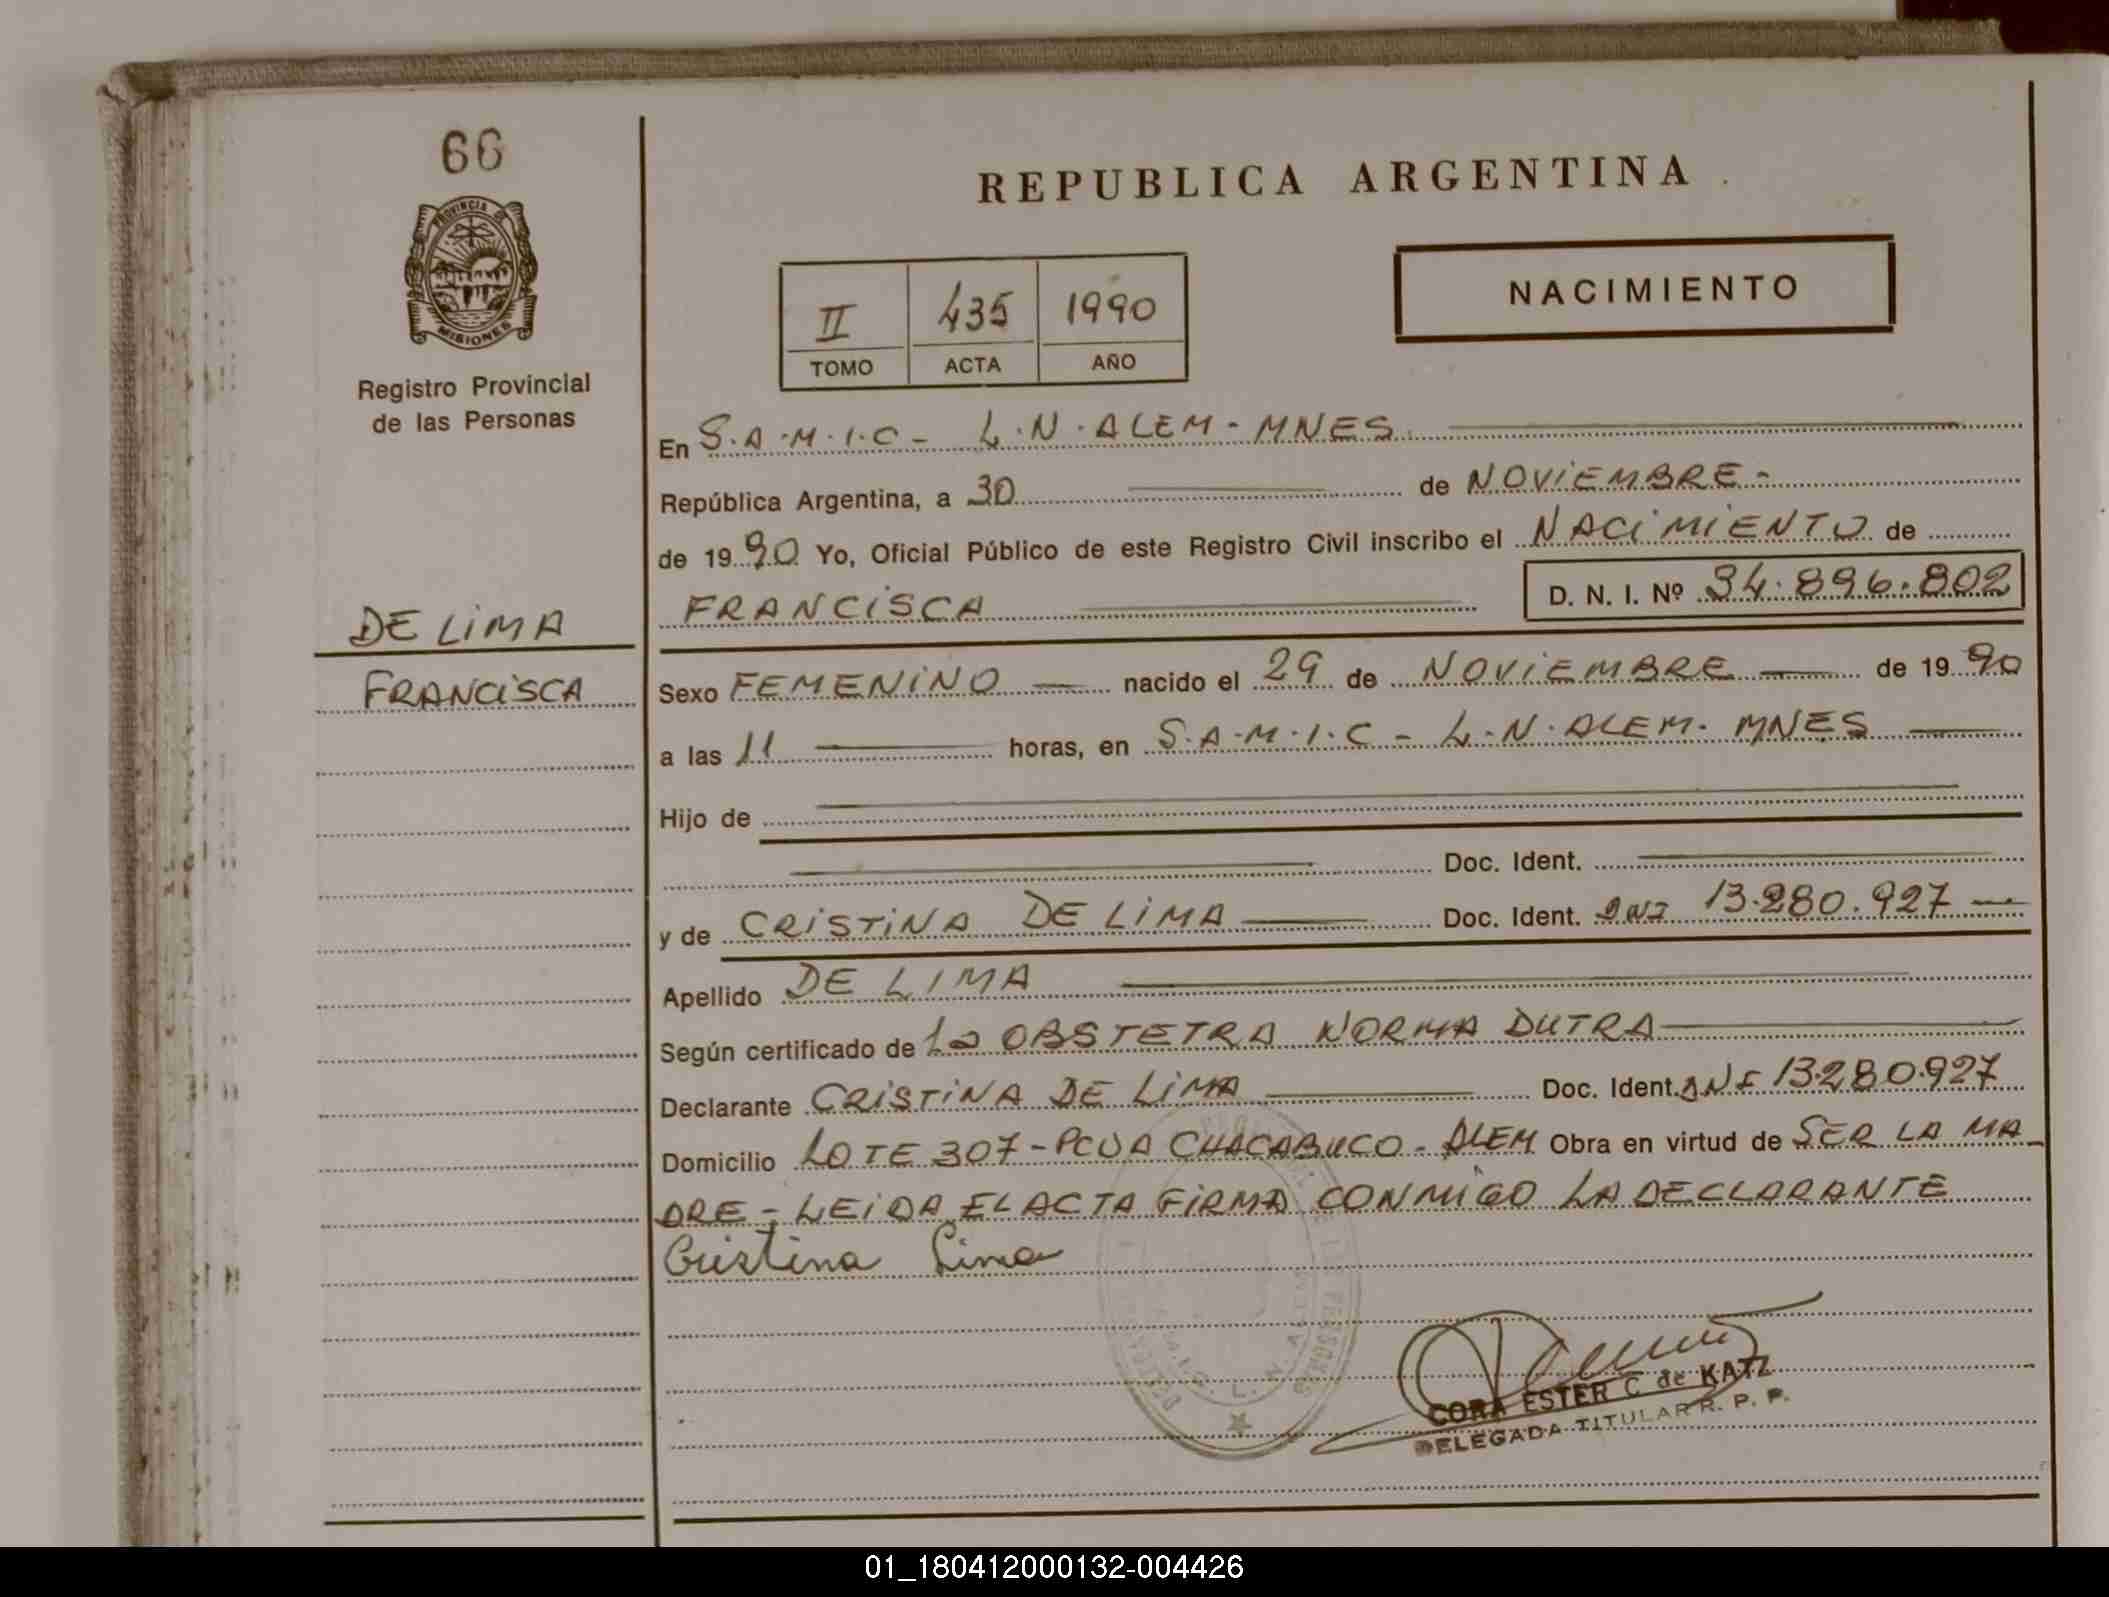 66
PROVINCIA DE
MISIONES
Registro Provincial
de las Personas
DE LIMA
FRANCISCA
REPUBLICA ARGENTINA
II 435 1990
TOMO ACTA AÑO
NACIMIENTO
En S.A.M.I.C - L.N. ALEM - MNES
República Argentina, a 30 de NOVIEMBRE -
de 19 90 Yo, Oficial Público de este Registro Civil inscribo el NACIMIENTO de
FRANCISCA D. N. I. Nº 34.896.802
Sexo FEMENINO nacido el 29 de NOVIEMBRE de 19 90
a las 11 horas, en S.A.M.I.C - L.N. ALEM. MNES
Hijo de
Doc. Ident.
y de CRISTINA DE LIMA Doc. Ident. DNI 13.280.927
Apellido DE LIMA
Según certificado de La OBSTETRA NORMA DUTRA
Declarante CRISTINA DE LIMA Doc. Ident. DNI 13.280.927
Domicilio LOTE 307 - PCUA CHACABUCO - ALEM Obra en virtud de SER LA MA_
DRE - LEIDA EL ACTA FIRMA CONMIGO LA DECLARANTE
Cristina Lima
CORA ESTER C de KATZ
DELEGADA TITULAR R. P. P.
01_180412000132-004426